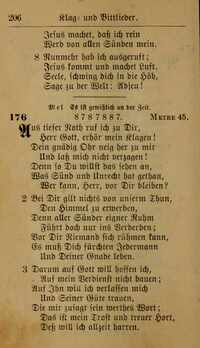 206 Klag= und Bittlieder.
Jesus machet, daß ich rein
Werd von allen Sünden mein.
8 Nunmehr hab ich ausgeruft;
Jesus kommt und machet Luft.
Seele, schwing dich in die Höh,
Sage zu der Welt: Adjeu!
Mel Es ist gewißlich an der Zeit.
176 8 7 8 7 8 8 7. METRE 45.
Aus tiefer Noth ruf ich zu Dir,
Herr Gott, erhör mein Klagen!
Dein gnädig Ohr neig her zu mir
Und laß mich nicht verzagen!
Denn so Du willt das sehen an,
Was Sünd und Unrecht hat gethan,
Wer kann, Herr, vor Dir bleiben?
2 Bei Dir gilt nichts von unserm Thun,
Den Himmel zu erwerben,
Denn aller Sünder eigner Ruhm
Führt doch nur ins Verderben;
Vor Dir Niemand sich rühmen kann,
Es muß Dich fürchten Jedermann
Und Deiner Gnade leben.
3 Darum auf Gott will hoffen ich,
Auf mein Verdienst nicht bauen;
Auf Ihn will ich verlassen mich
Und Seiner Güte trauen,
Die mir zusagt sein werthes Wort;
Das ist mein Trost und treuer Hort,
Deß will ich allzeit harren.